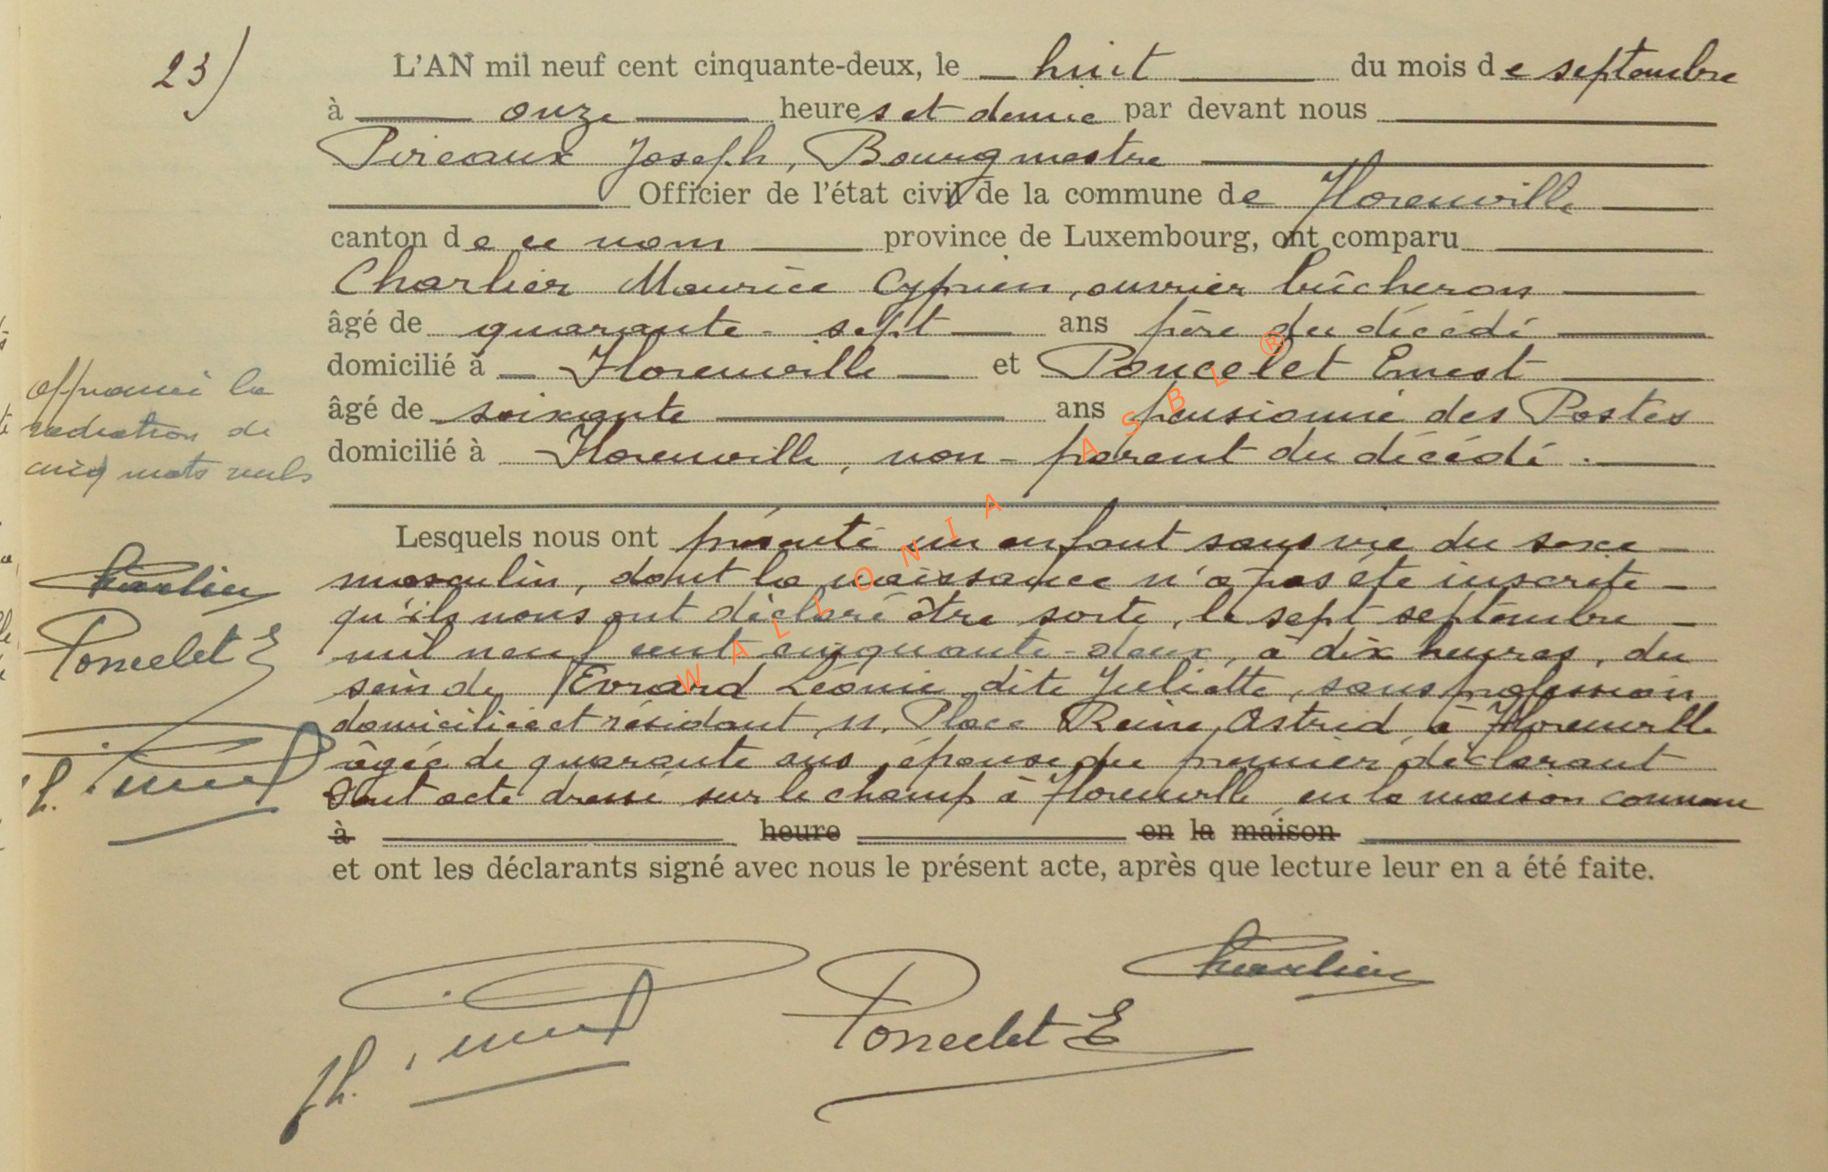 23)
L'AN mil neuf cent cinquante-deux, le huit du mois de septembre
à onze heures et demie par devant nous
Pireaux Joseph, Bourgmestre
Officier de l'état civil de la commune de Florenville
canton de ce nom province de Luxembourg, ont comparu
Charlier Maurice Cyprien, ouvrier bûcheron
âgé de quarante-sept ans père du décédé
domicilié à Florenville et Poncelet Ernest
âgé de soixante ans pensionné des Postes
domicilié à Florenville, non-parent du décédé.
Approuvé la
radiation de
cinq mots nuls
Charlier
Poncelet E
Jh.
Lesquels nous ont présenté un enfant sans vie du sexe
masculin, dont la naissance n'a pas été inscrite
qu'ils nous ont déclaré être sorti, le sept septembre
mil neuf cent cinquante-deux, à dix heures, du
sein de Evrard Léonie dite Juliette, sans profession
domiciliée et résidant, 11, Place Reine Astrid, à Florenville
âgée de quarante ans, épouse du premier déclarant
Dont acte dressé sur le champ à Florenville en la maison commune
à heure en la maison
et ont les déclarants signé avec nous le présent acte, après que lecture leur en a été faite.
Charlier
Poncelet E
Jh.
WALLONIA ASBL ®